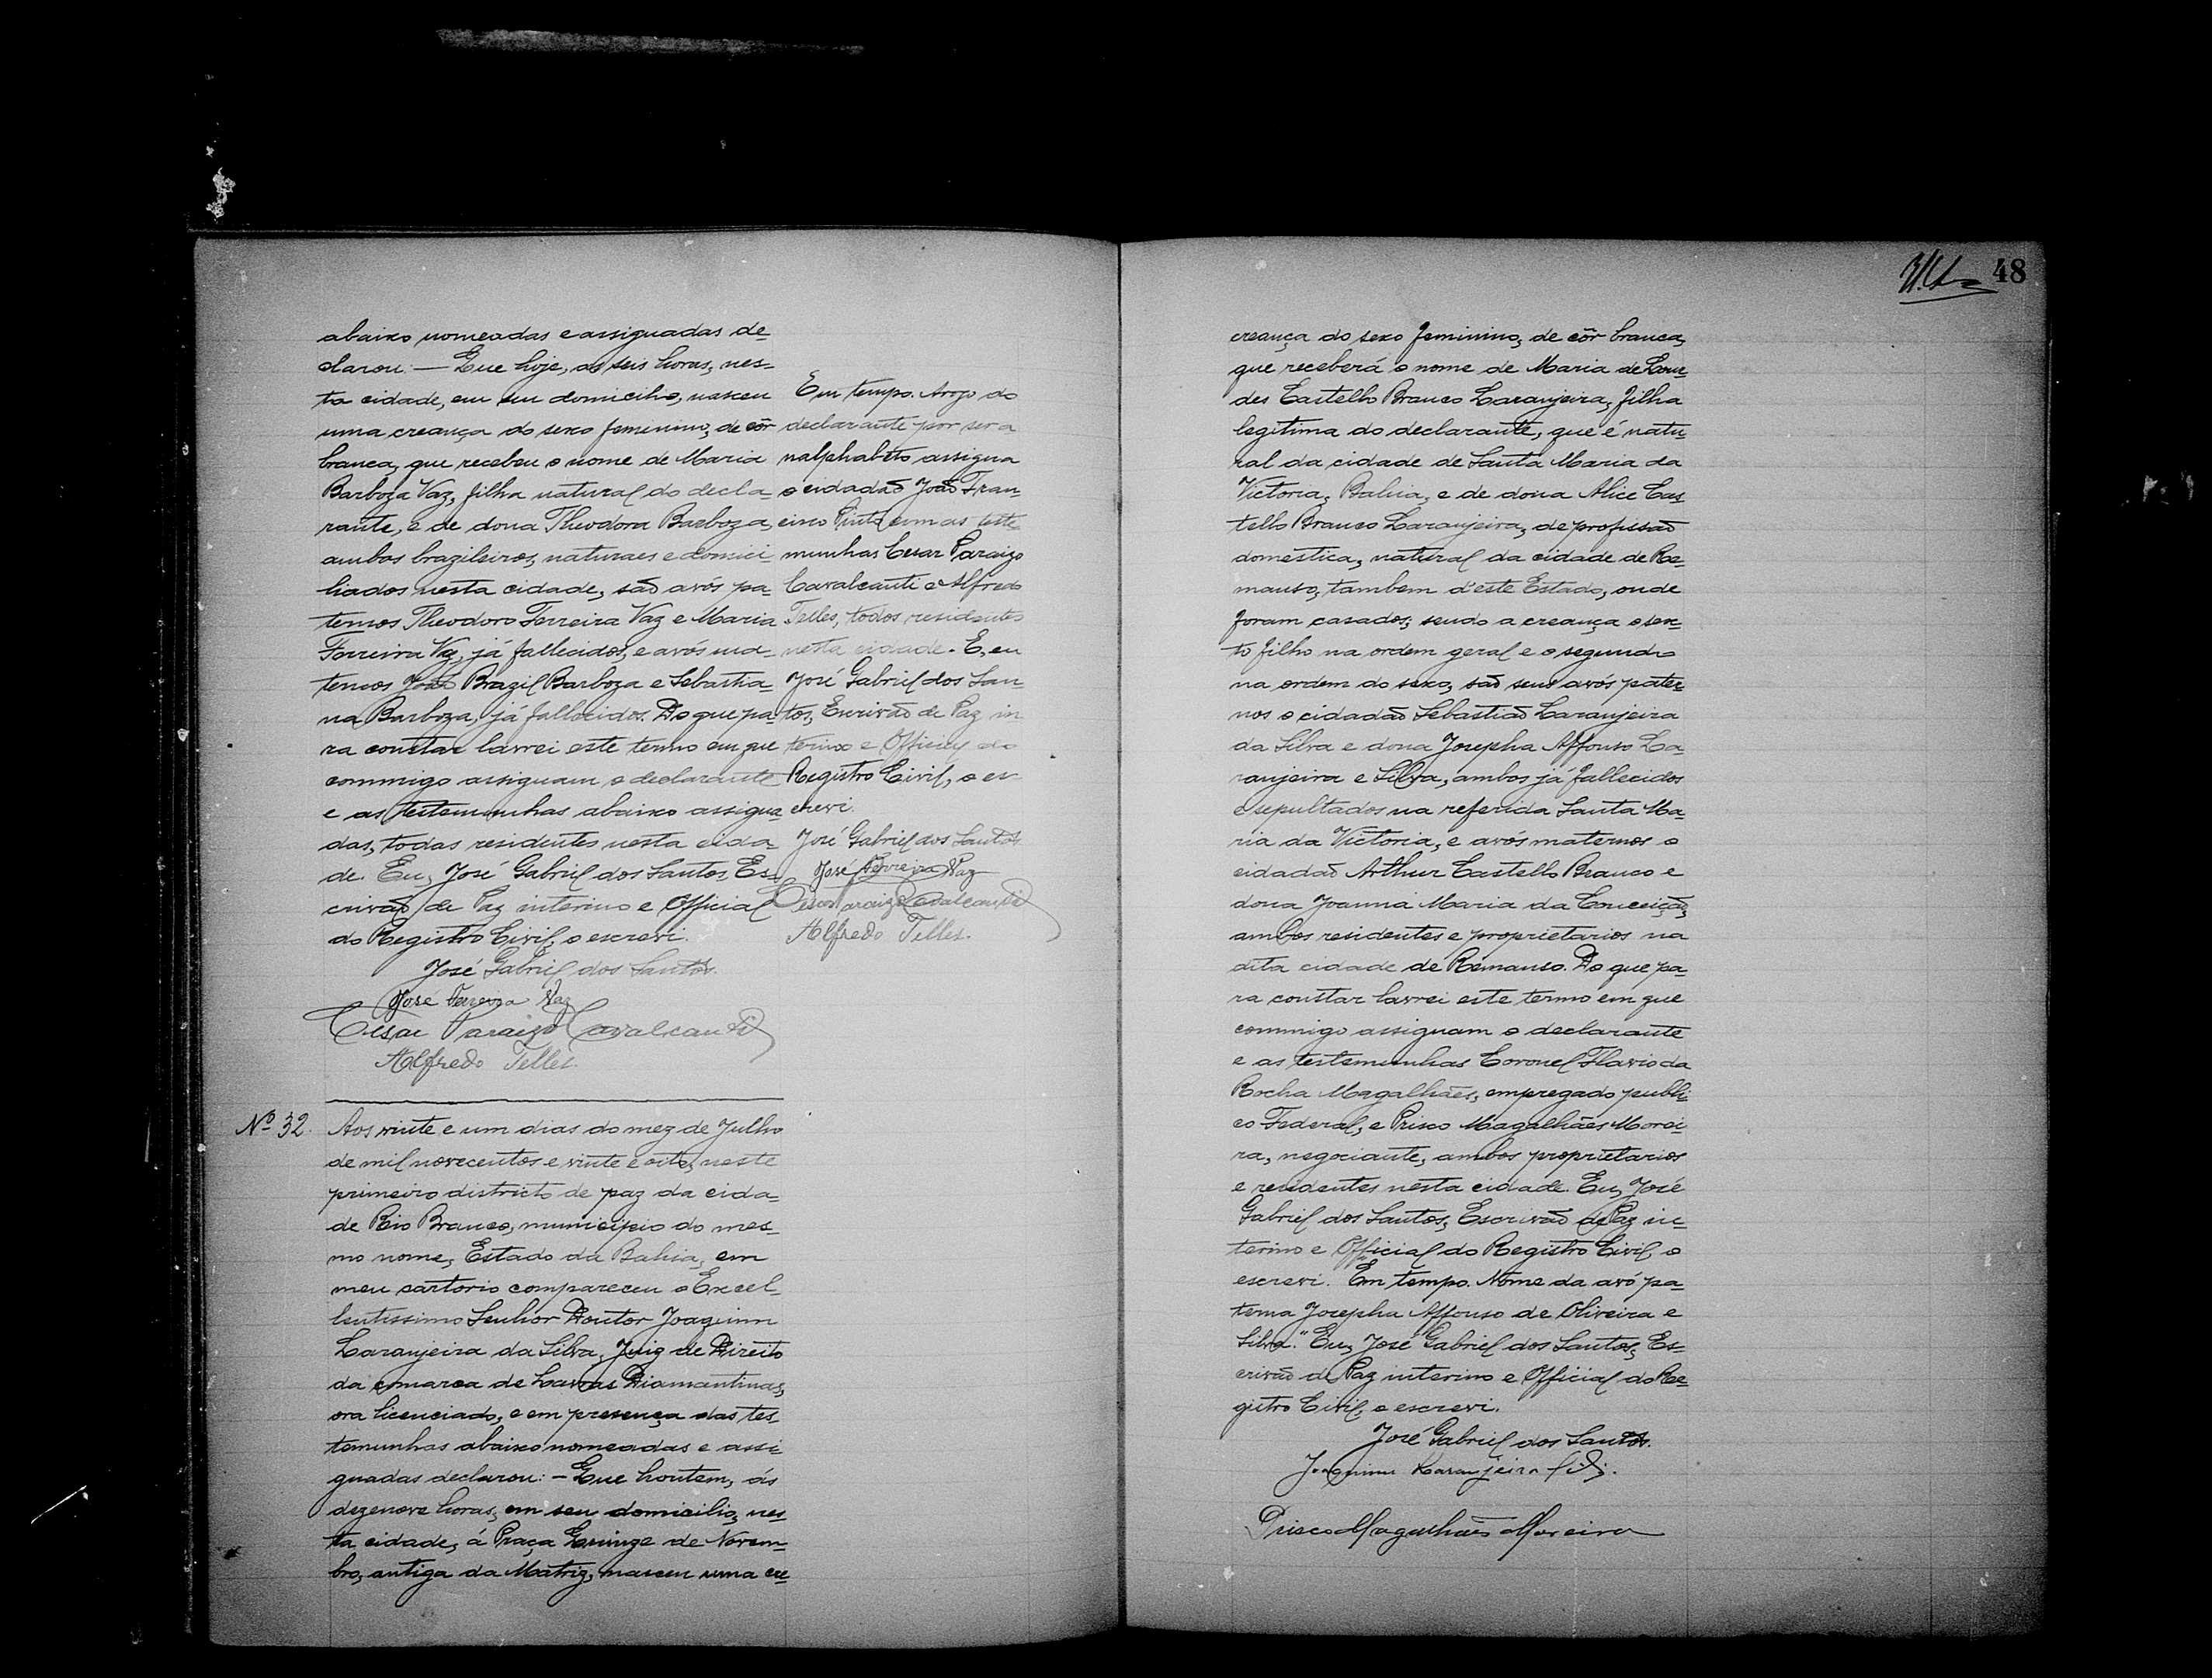 abaixo nomeadas e assignadas de-
clarou: — Que hoje, as seis horas, nes-
ta cidade, em seu domicilio, nasceu
uma creança do sexo femenino, de côr
branca, que recebeu o nome de Maria
Barboza Vaz, filha natural do decla-
rante, e de dona Theodora Barboza,
ambos brazileiros, naturaes e domici-
liados nesta cidade, são avós pa-
ternos Theodoro Ferreira Vaz e Maria
Ferreira Vaz, já fallecidos, e avós ma-
ternos João Brazil Barboza e Sebastia-
na Barboza, já fallecidos. Do que pa-
ra constar lavrei este termo em que
commigo assignam o declarante
e as testemunhas abaixo assigna-
das, todas residentes nesta cida-
de. Eu, José Gabriel dos Santos, Es-
crivão de Paz interino e Official
do Registro Civil, o escrevi.
José Gabriel dos Santos.
José Ferreira Vaz
Cesar Paraizo Cavalcanti
Alfredo Telles.
Em tempo. Arogo do
declarante por ser a
nalphabeto assigna
o cidadão João Fran-
cisco Pinto com as teste
munhas Cesar Paraizo
Cavalcanti e Alfredo
Telles, todos residentes
nesta cidade. E, eu
José Gabriel dos San-
tos, Escrivão de Paz in
terino e Official do
Registro Civil, o es-
crevi.
José Gabriel dos Santos
José Ferreira Vaz
Cesar Paraizo Cavalcanti
Alfredo Telles.
Nº 32. Aos vinte e um dias do mez de Julho
de mil novecentos e vinte e oito, neste
primeiro districto de paz da cida-
de Rio Branco, municipio do mes-
mo nome, Estado da Bahia, em
meu cartorio compareceu o Excel-
lentissimo Senhor Doutor Joaquim
Laranjeira da Silva, Juiz de Direito
da comarca de Lavras Diamantinas,
ora licenciado, e em presença das tes-
temunhas abaixo nomeadas e assi-
gnadas declarou: — Que hontem, ás
dezenove horas, em seu domicilio, nes-
ta cidade, á Praça Quinze de Novem-
bro, antiga da Matriz, nasceu uma cre-
48
creança do sexo feminino, de côr branca,
que receberá o nome de Maria de Lour-
des Castello Branco Laranjeira, filha
legitima do declarante, que é natu-
ral da cidade de Santa Maria da
Victoria, Bahia, e de dona Alice Cas-
tello Branco Laranjeira, de profissão
domestica, natural da cidade de Re-
manso, tambem d'este Estado, onde
foram casados; sendo a creança o sex-
to filho na ordem geral e o segundo
na ordem do sexo, são seus avós pater-
nos o cidadão Sebastião Laranjeira
da Silva e dona Josepha Affonso La-
ranjeira e Silva, ambos já fallecidos
e sepultados na referida Santa Ma-
ria da Victoria, e avós maternos o
cidadão Arthur Castello Branco e
dona Joanna Maria da Conceição,
ambos residentes e proprietarios na
dita cidade de Remanso. Do que pa-
ra constar lavrei este termo em que
commigo assignam o declarante
e as testemunhas Coronel Flavio da
Rocha Magalhães, empregado publi-
co Federal, e Prisco Magalhães Morei-
ra, negociante, ambos proprietarios
e residentes nesta cidade. Eu, José
Gabriel dos Santos, Escrivão de Paz in-
terino e Official do Registro Civil, o
escrevi. Em tempo. Nome da avó pa-
terna Josepha Affonso de Oliveira e
Silva." Eu, José Gabriel dos Santos, Es-
crivão de Paz interino e Official do Re-
gistro Civil, o escrevi.
José Gabriel dos Santos.
Joaquim Laranjeira
Prisco Magalhães Moreira